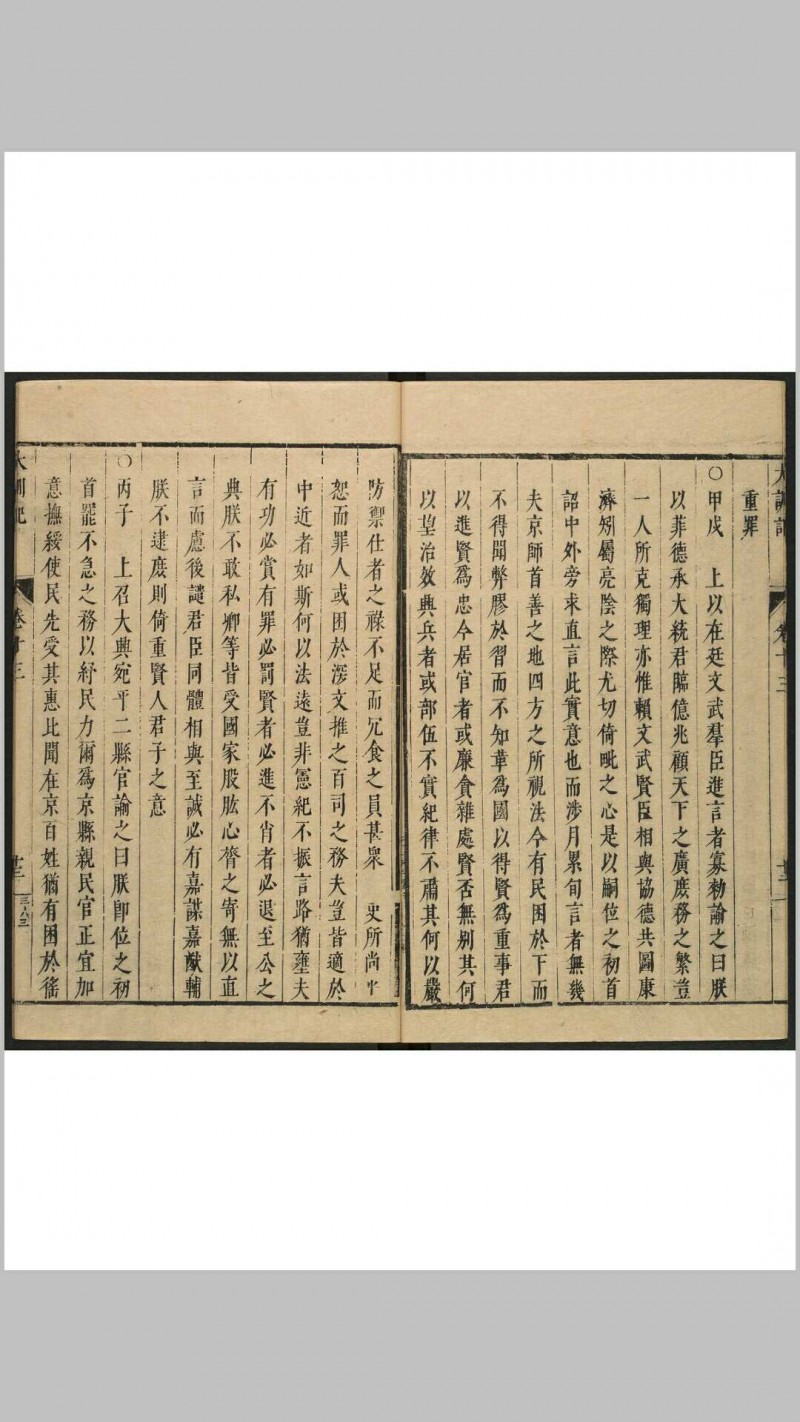 重罪
○甲戌　上以在廷文武羣臣進言者寡勑諭之曰朕
以菲德承大統君臨億兆顧天下之廣庶務之繁豈
一人所克獨理亦惟賴文武賢臣相與協德共圖康
濟矧屬亮陰之際尤切倚毗之心是以嗣位之初首
詔中外旁求直言此實意也而涉月累旬言者無幾
夫京師首善之地四方之所視法今有民困於下而
不得聞弊膠於習而不知革為國以得賢為重事君
以進賢為忠今居官者或廉貪雜處賢否無别其何
以望治效典兵者或部伍不實紀律不肅其何以嚴
防禦仕者之祿不足而冗食之員甚衆　史所尚平
恕而罪人或困於深文推之百司之務夫豈皆適於
中近者如斯何以法遠豈非憲紀不振言路猶壅夫
有功必賞有罪必罰賢者必進不肖者必退至公之
典朕不敢私卿等皆受國家股肱心膂之寄無以直
言而慮後譴君臣同體相與至誠必有嘉謀嘉猷輔
朕不逮庶則倚重賢人君子之意
○丙子　上召大興宛平二縣官諭之曰朕卽位之初
首罷不急之務以紓民力爾為京縣親民官正宜加
意撫綏使民先受其惠比聞在京百姓猶有困於徭
大訓記　卷十三